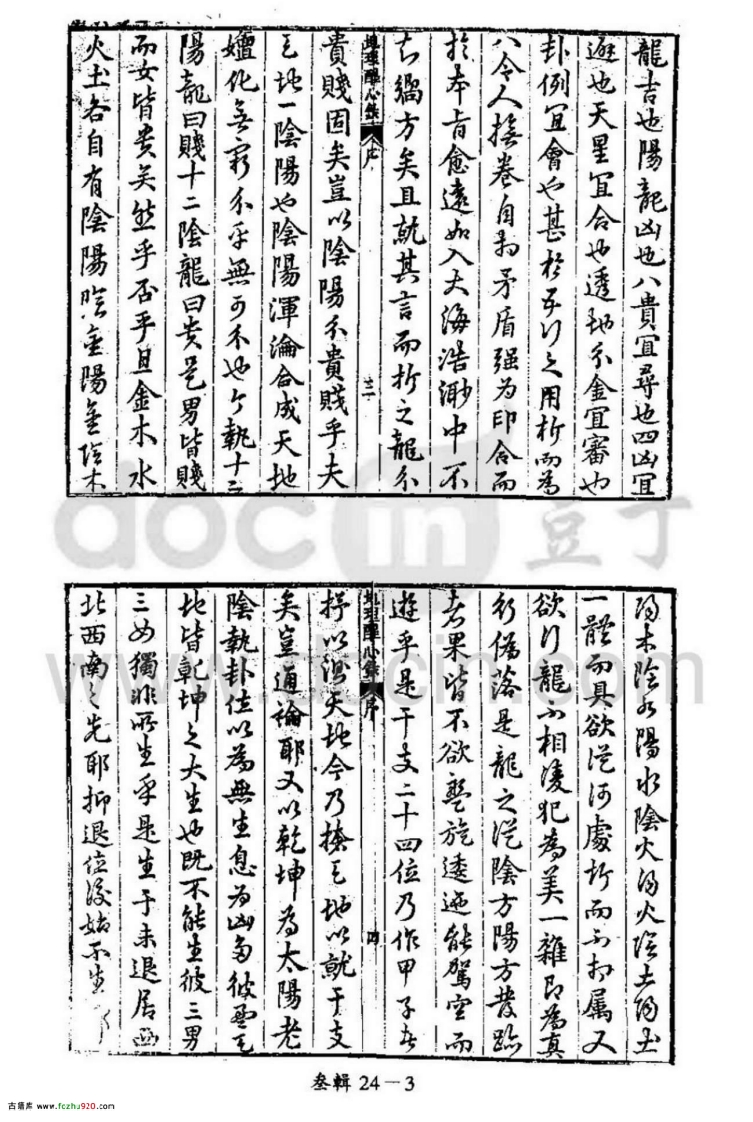 龍吉也陽龍凶也八貴宜尋也四凶宜
避也天星宜合也透地分金宜審也
卦例宜會也甚於五行之用析而為
八令人撫卷自為矛盾强为印合而
於本旨愈遠如入大海浩渺中不
知緇方矣且就其言而折之龍分
地理醒心錄 序 三
貴賤固矣豈以陰陽分貴賤乎夫
天地一陰陽也陰陽渾淪合成天地
嬗化無窮分乎無可分也今執十二
陽龍曰賤十二陰龍曰貴是男皆賤
而女皆貴矣然乎否乎且金木水
火土各自有陰陽陰金陽金陰木
陽木陰水陽水陰火陽火陰土陽土
一體而具欲從何處析而分屬又
欲行龍不相淩犯為美一雜即為真
行偽落是龍之從陰方陽方發跡
者果皆不欲盤旋逶迤能駕空而
遊乎是干支二十四位乃作甲子者
地理醒心錄 序 四
以測天地今乃揍天地以就干支
矣豈通論耶又以乾坤為太陽老
陰執卦位以為無生息为凶彼
地皆乾坤之大生也既不能生彼三男
三女獨非所生乎是生于未退居西
北西南之先耶抑退位後始不生耶
叁輯 24－3
docin 豆丁
www.docin.com
古籍库 www.fczhu920.com